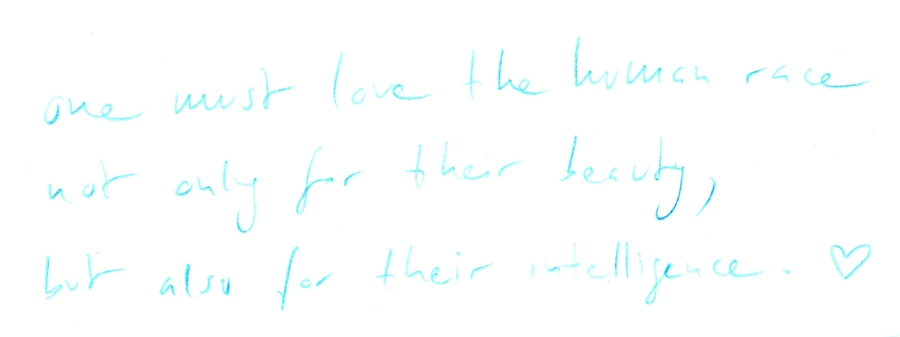 one must love the human race
not only for their beauty,
but also for their intelligence. ♡